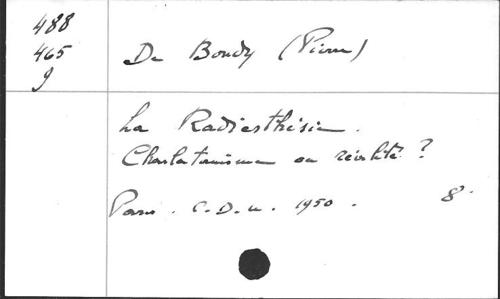 488
465
9
De Boudy (Pierre)
La Radiesthésie.
Charlatanisme ou réalité ?
Paris. C.D.U. 1950. 8°